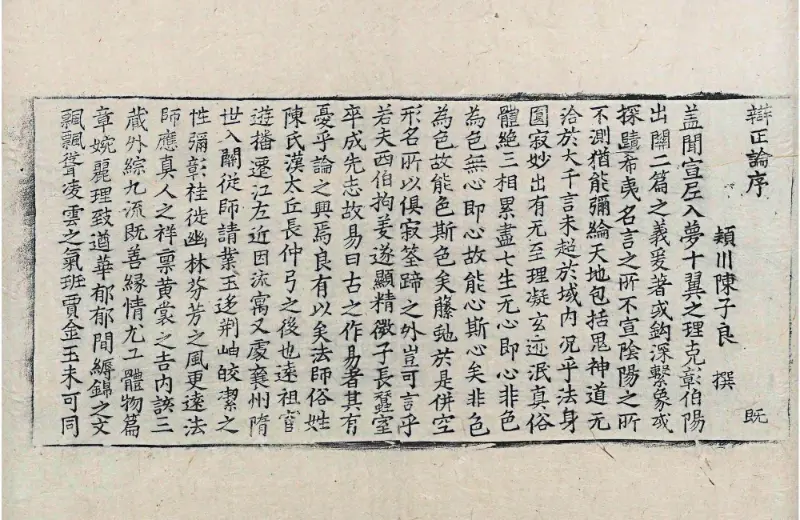 辯正論序
潁川陳子良 撰 既
盖聞宣尼入夢十翼之理克彰伯陽
出關二篇之義爰著或鈎深繫象或
探賾希夷名言之所不宣陰陽之所
不測猶能彌綸天地包括鬼神道无
洽於大千言未超於域内況乎法身
圓寂妙出有无至理凝玄迹泯真俗
體絶三相累盡七生无心即心非色
為色無心即心故能心斯心矣非色
為色故能色斯色矣藤虵於是併空
形名所以俱寂筌蹄之外豈可言乎
若夫西伯拘羑遂顯精微子長蠶室
卒成先志故易曰古之作易者其有
憂乎論之興焉良有以矣法師俗姓
陳氏漢太丘長仲弓之後也遠祖官
遊播遷江左近因流寓又處襄州隋
世入關從師請業玉迻荆岫皎潔之
性彌彰桂徙幽林芬芳之風更遠法
師應真人之祥禀黄裳之吉内該三
藏外綜九流既善緣情尤工體物篇
章婉麗理致遒華郁郁間縟錦之文
飄飄聳凌雲之氣班賈金玉未可同